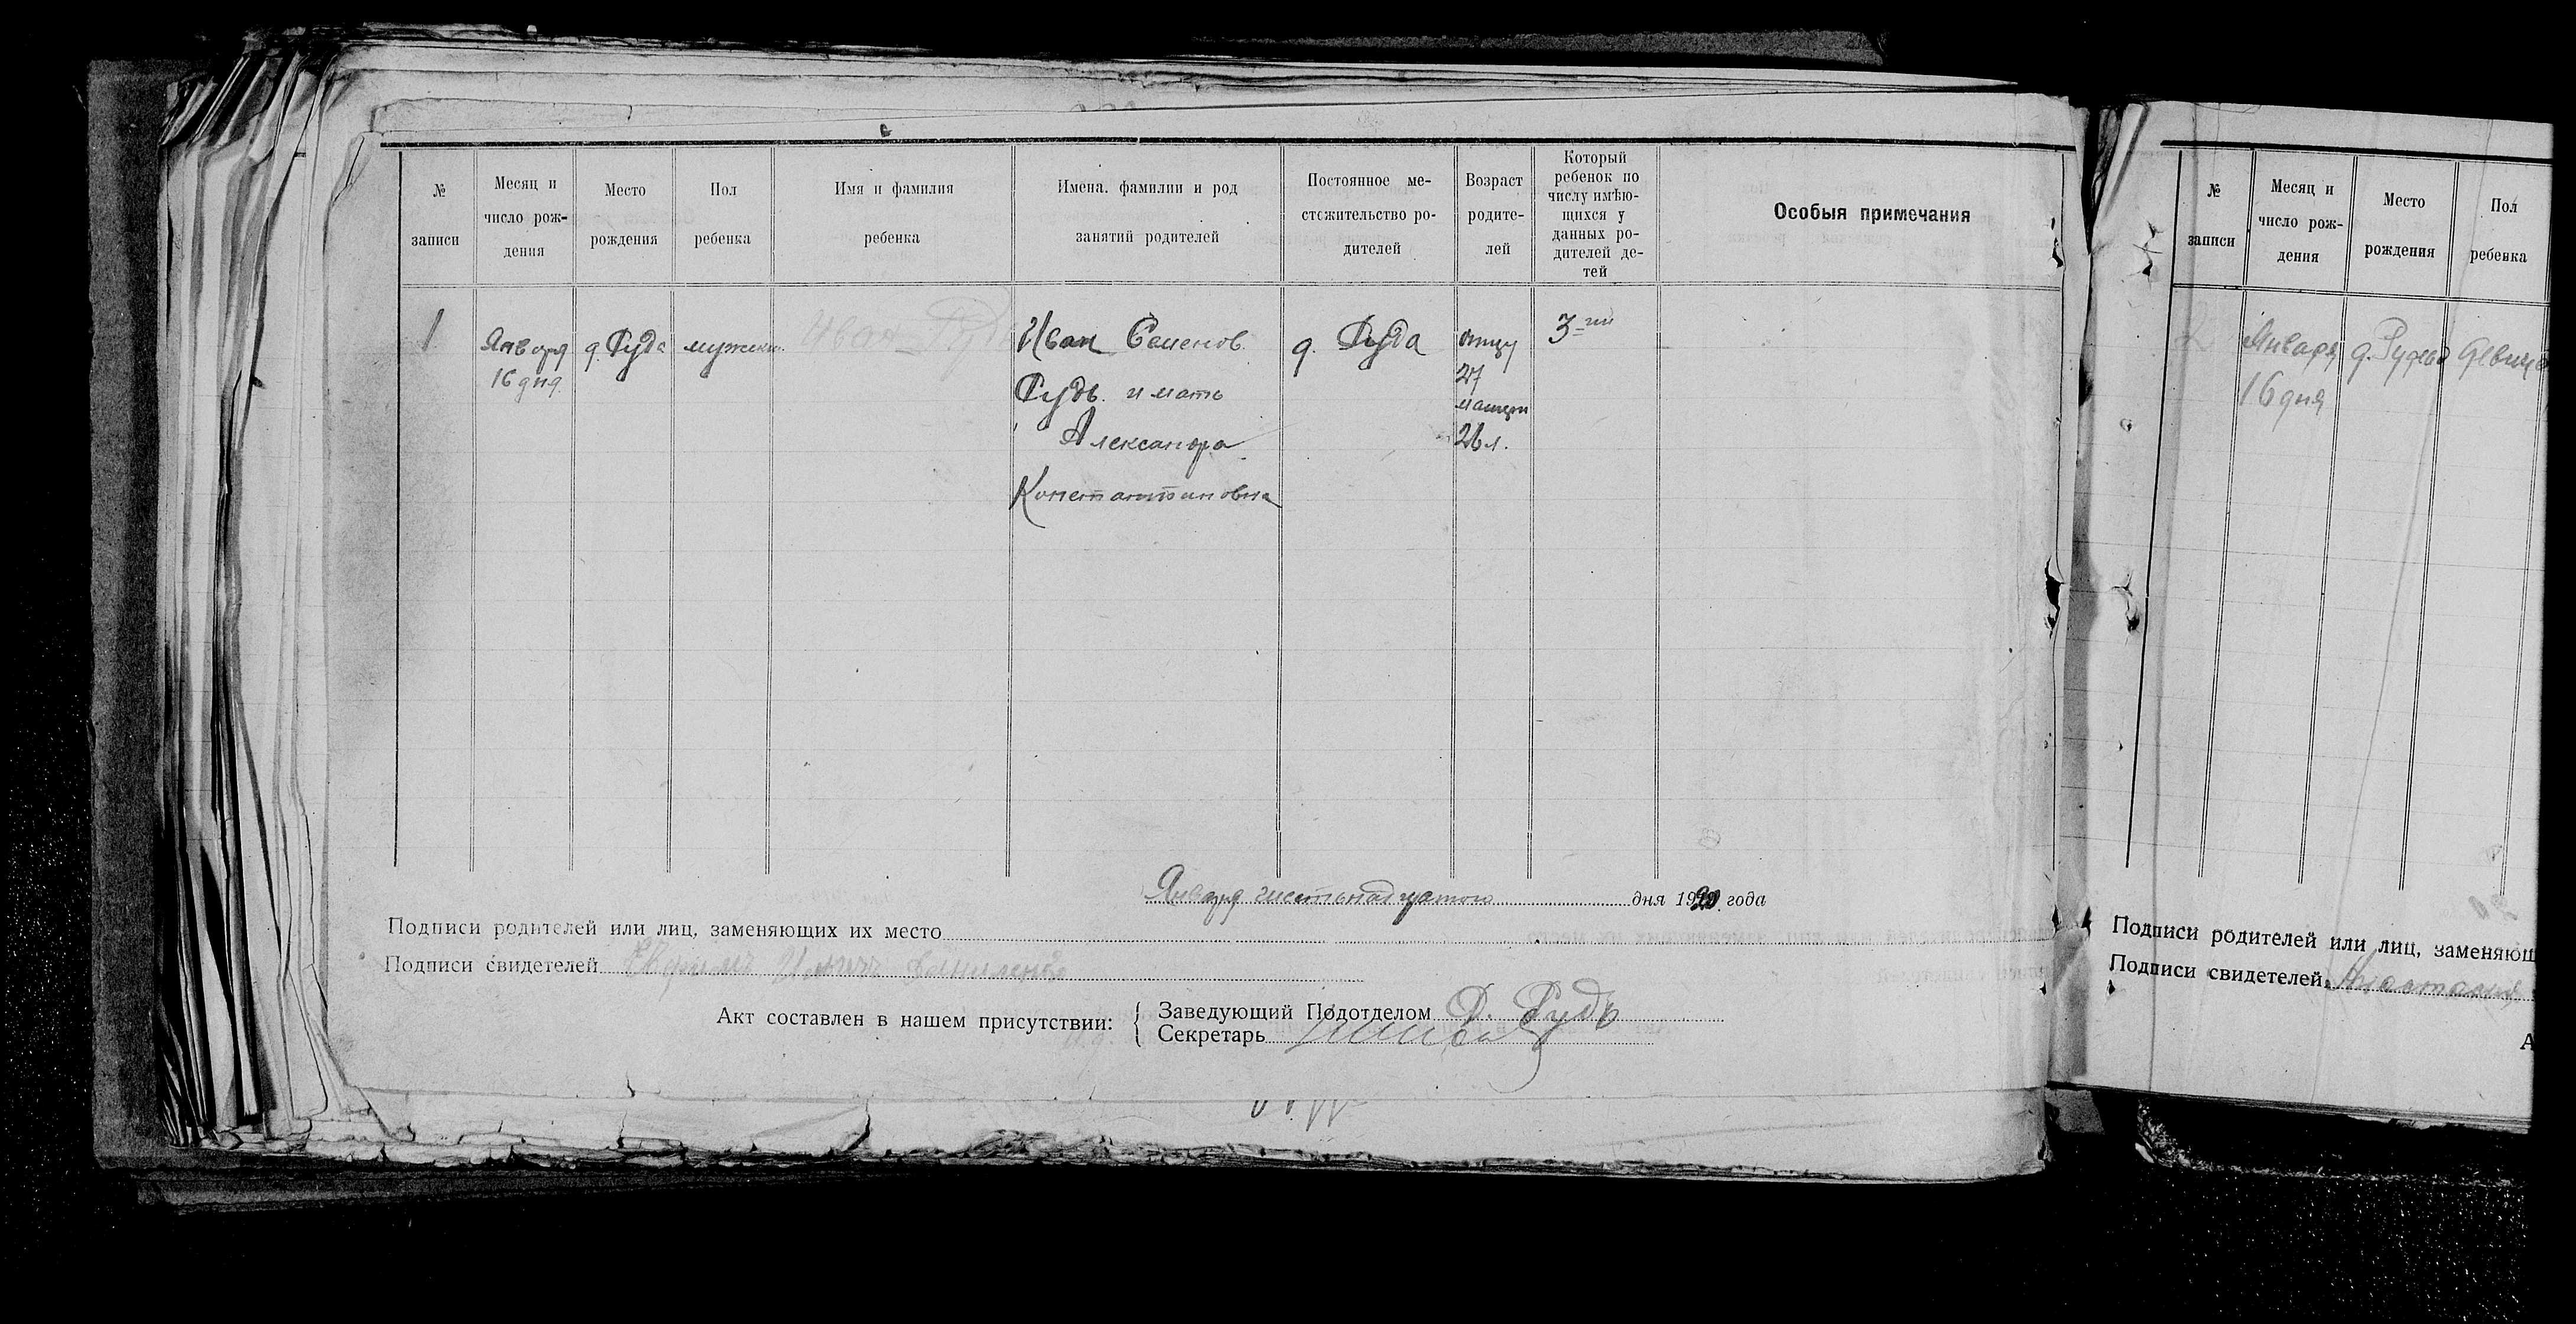 № записи
Месяц и число рождения
Место рождения
Пол ребенка
Имя и фамилия ребенка
Имена. фамилии и род занятий родителей
Постоянное местожительство родителей
Возраст родителей
Который ребенок по числу имѣющихся у данных родителей детей
Особыя примечания
1
Января
16 дня
д. Рудa
мужск.
Иван Рудь
Иван Семенов
Рудь и мать
Александра
Константиновна
д. Руда
отцу
27
матери
26 л.
3-ий
Января шестьнадцатого дня 1920 года
Подписи родителей или лиц, заменяющих их место
Подписи свидетелей
Акт составлен в нашем присутствии:
Заведующий Подотделом Д. Рудь
Секретарь
№ записи
Месяц и число рождения
Место рождения
Пол ребенка
2
Января
16 дня
д.
девица
Подписи родителей или лиц, заменяющ
Подписи свидетелей Анастасия
А